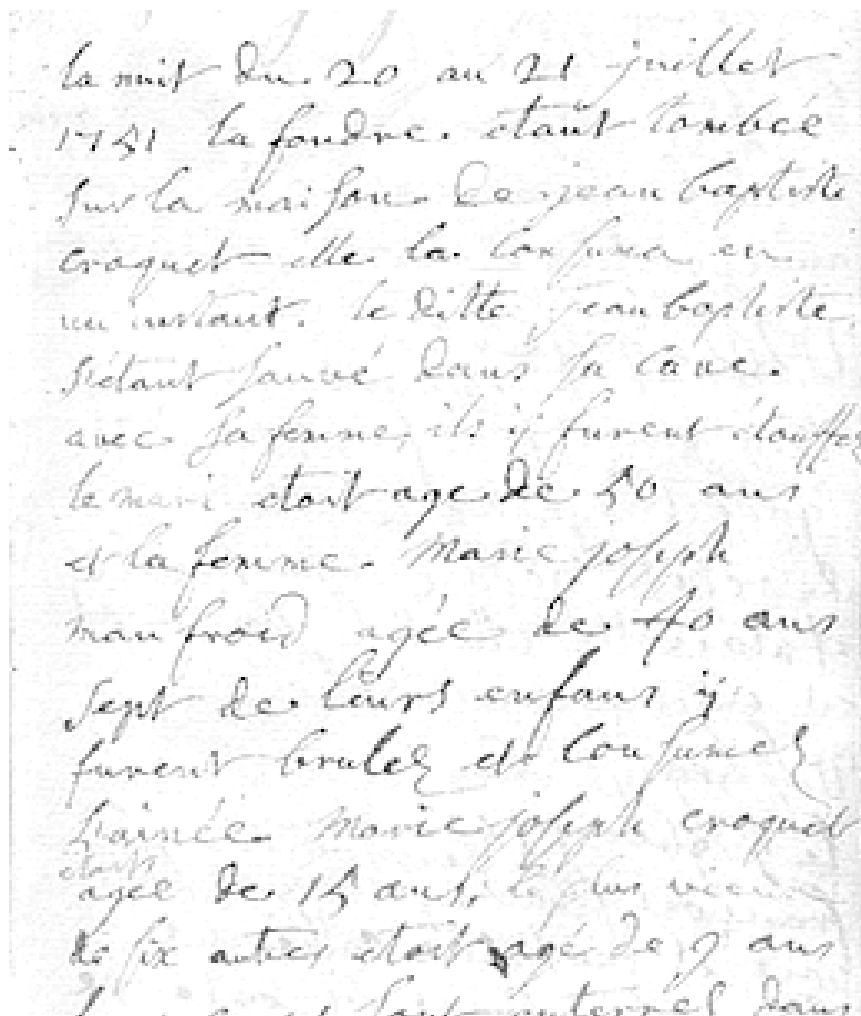 la nuit du 20 au 21 juillet
1751 la foudre étant tombée
sur la maison de jean baptiste
croquet elle la consuma en
un instant. le ditte jean baptiste
s'étant sauvé dans sa cave
avec sa femme, ils ÿ furent étouffez
le mari etoit age de 50 ans
et la femme Marie joseph
manfroid agée de 40 ans
sept de leurs enfans ÿ
furent brulez et consumez
L'ainée Marie joseph croquet
etoit
agée de 15 ans, le plus vieux
de six autres etoit agé de 9 ans
sont enterrés dans